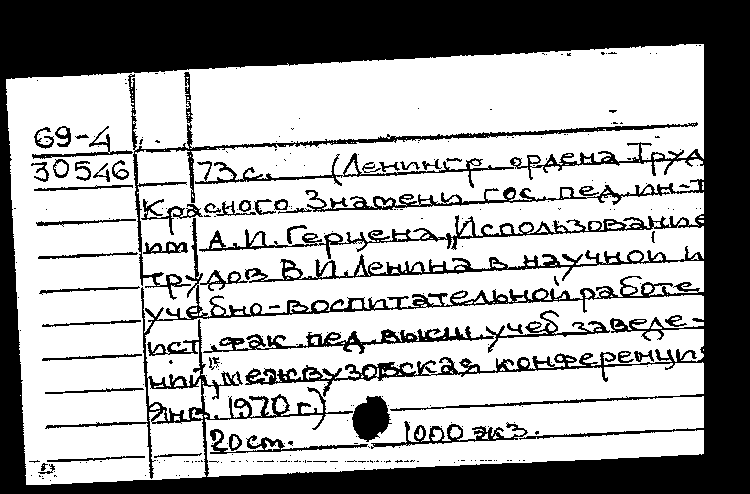 69-4
30546 73с. (Ленингр. ордена Труд
Красного Знамени гос. пед. ин-т
им. А.И. Герцена „Использование
трудов В.И. Ленина в научной и
учебно-воспитательной работе
ист. фак. пед. высш. учеб. заведе-
ний", межвузовская конференция
Янв. 1970 г.)
20 ст. 1000 экз.